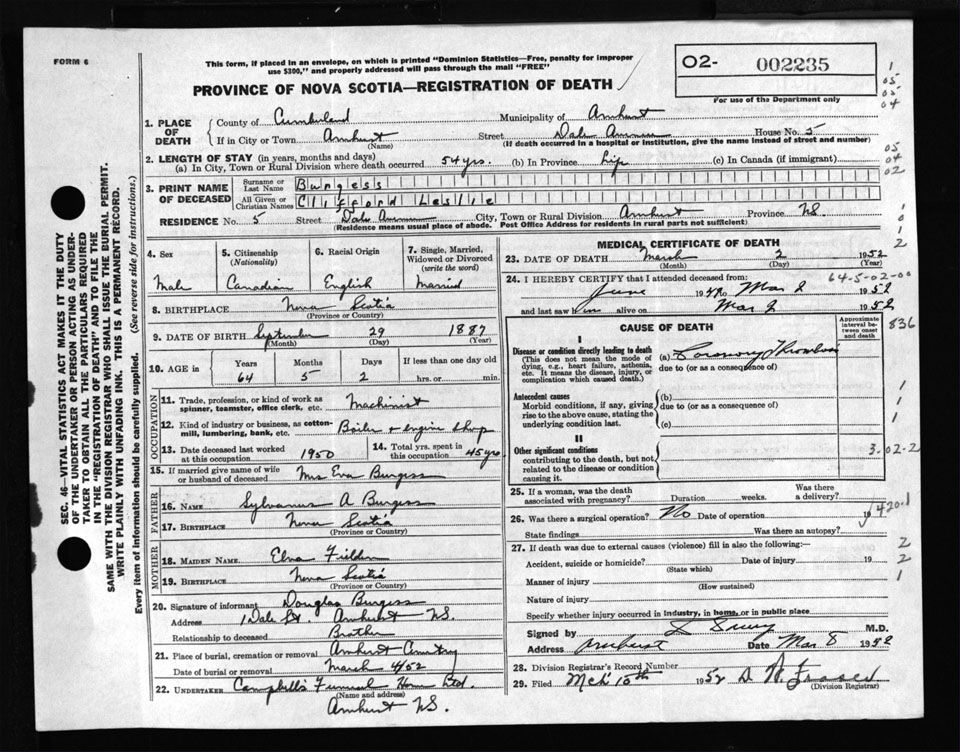 FORM 6
This form, if placed in an envelope, on which is printed "Dominion Statistics—Free, penalty for improper
use $300," and properly addressed will pass through the mail "FREE"
O2- 002235
For use of the Department only
PROVINCE OF NOVA SCOTIA—REGISTRATION OF DEATH
1. PLACE OF DEATH
County of Cumberland Municipality of Amherst
If in City or Town Amherst Street Dale House No. 5
(Name) (If death occurred in a hospital or institution, give the name instead of street and number)
2. LENGTH OF STAY (in years, months and days)
(a) In City, Town or Rural Division where death occurred 54 yrs. (b) In Province Life (c) In Canada (if immigrant)
3. PRINT NAME OF DECEASED
Surname or Last Name Burgess
All Given or Christian Names Clifford Leslie
RESIDENCE No. 5 Street Dale City, Town or Rural Division Amherst Province NS
(Residence means usual place of abode. Post Office Address for residents in rural parts not sufficient)
4. Sex
Male
5. Citizenship
(Nationality)
Canadian
6. Racial Origin
English
7. Single, Married,
Widowed or Divorced
(write the word)
Married
8. BIRTHPLACE Nova Scotia
(Province or Country)
9. DATE OF BIRTH September 29 1887
(Month) (Day) (Year)
10. AGE in Years Months Days If less than one day old
64 5 2 hrs. or min.
OCCUPATION
11. Trade, profession, or kind of work as
spinner, teamster, office clerk, etc. Machinist
12. Kind of industry or business, as cotten-
mill, lumbering, bank, etc. Boiler & engine shop
13. Date deceased last worked
at this occupation 1950
14. Total yrs. spent in
this occupation 45 yrs.
15. If married give name of wife
or husband of deceased Mrs Eva Burgess
FATHER
16. NAME Sylvanus A Burgess
17. BIRTHPLACE Nova Scotia
(Province or Country)
MOTHER
18. MAIDEN NAME Fielden
19. BIRTHPLACE Nova Scotia
(Province or Country)
20. Signature of informant Douglas Burgess
Address 1 Dale St. Amherst NS.
Relationship to deceased Brother
21. Place of burial, cremation or removal Amherst Cemetery
Date of burial or removal March 4/52
22. UNDERTAKER Campbell's Funeral Home Ltd.
(Name and address)
Amherst NS.
MEDICAL CERTIFICATE OF DEATH
23. DATE OF DEATH March 2 1952
(Month) (Day) (Year)
64-5-02-00
24. I HEREBY CERTIFY that I attended deceased from:
June 19 to Mar 2 1952
and last saw him alive on Mar 2 1952
CAUSE OF DEATH
Approximate
interval be-
tween onset
and death
I
Disease or condition directly leading to death
(This does not mean the mode of
dying, e.g., heart failure, asthenia,
etc. It means the disease, injury, or
complication which caused death.)
(a) Coronary Thrombosis
due to (or as a consequence of)
Antecedent causes
Morbid conditions, if any, giving
rise to the above cause, stating the
underlying condition last.
(b)
due to (or as a consequence of)
(c)
II
Other significant conditions
contributing to the death, but not
related to the disease or condition
causing it.
25. If a woman, was the death
associated with pregnancy? Duration weeks. Was there
a delivery?
26. Was there a surgical operation? No Date of operation 19
State findings Was there an autopsy?
27. If death was due to external causes (violence) fill in also the following:—
Accident, suicide or homicide? Date of injury 19
(State which)
Manner of injury
(How sustained)
Nature of injury
Specify whether injury occurred in industry, in home, or in public place
Signed by M.D.
Address Amherst Date Mar 8 1952
28. Division Registrar's Record Number
29. Filed Mch 15th 1952
(Division Registrar)
1
05
05
04
05
04
02
1
0
1
2
836
1
1
1
3-02-2
420.1
2
2
1
SEC. 46—VITAL STATISTICS ACT MAKES IT THE DUTY
OF THE UNDERTAKER OR PERSON ACTING AS UNDER-
TAKER TO OBTAIN ALL THE PARTICULARS REQUIRED
IN THE "REGISTRATION OF DEATH" AND TO FILE THE
SAME WITH THE DIVISION REGISTRAR WHO SHALL ISSUE THE BURIAL PERMIT.
WRITE PLAINLY WITH UNFADING INK. THIS IS A PERMANENT RECORD.
Every item of information should be carefully supplied. (See reverse side for instructions.)